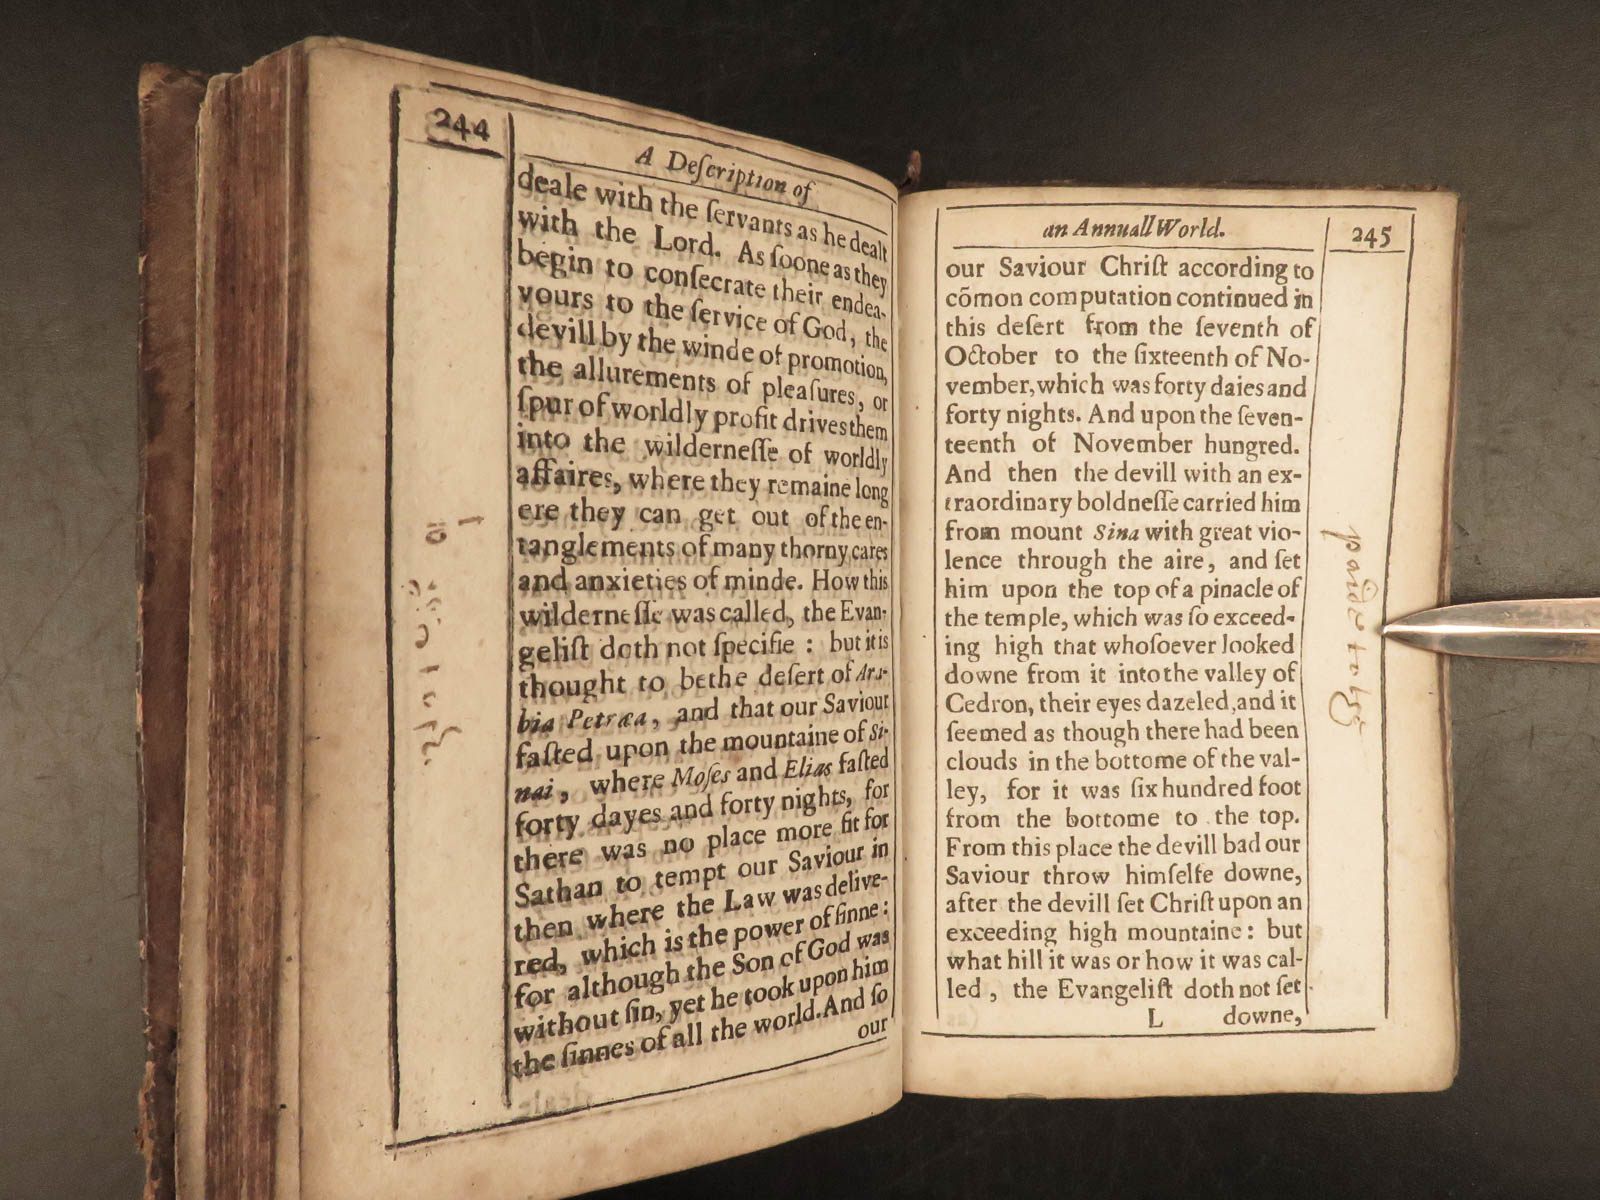 244
A Deſcription of
deale with the ſervants as he dealt
with the Lord. As ſoone as they
begin to conſecrate their endea-
vours to the ſervice of God, the
devill by the winde of promotion,
the allurements of pleaſures, or
ſpur of worldly profit drives them
into the wilderneſſe of worldly
affaires, where they remaine long
ere they can get out of the en-
tanglements of many thorny cares
and anxieties of minde. How this
wilderneſſe was called, the Evan-
geliſt doth not ſpecifie : but it is
thought to be the deſert of Ara-
bia Petræa, and that our Saviour
faſted upon the mountaine of Si-
nai, where Moſes and Elias faſted
forty dayes and forty nights, for
there was no place more fit for
Sathan to tempt our Saviour in
then where the Law was delive-
red, which is the power of ſinne:
for although the Son of God was
without ſin, yet he took upon him
the ſinnes of all the world. And ſo
our
an Annuall World.
245
our Saviour Chriſt according to
cōmon computation continued in
this deſert from the ſeventh of
October to the ſixteenth of No-
vember, which was forty daies and
forty nights. And upon the ſeven-
teenth of November hungred.
And then the devill with an ex-
traordinary boldneſſe carried him
from mount Sina with great vio-
lence through the aire, and ſet
him upon the top of a pinacle of
the temple, which was ſo exceed-
ing high that whoſoever looked
downe from it into the valley of
Cedron, their eyes dazeled, and it
ſeemed as though there had been
clouds in the bottome of the val-
ley, for it was ſix hundred foot
from the bottome to the top.
From this place the devill bad our
Saviour throw himſelfe downe,
after the devill ſet Chriſt upon an
exceeding high mountaine: but
what hill it was or how it was cal-
led, the Evangeliſt doth not ſet
L downe,